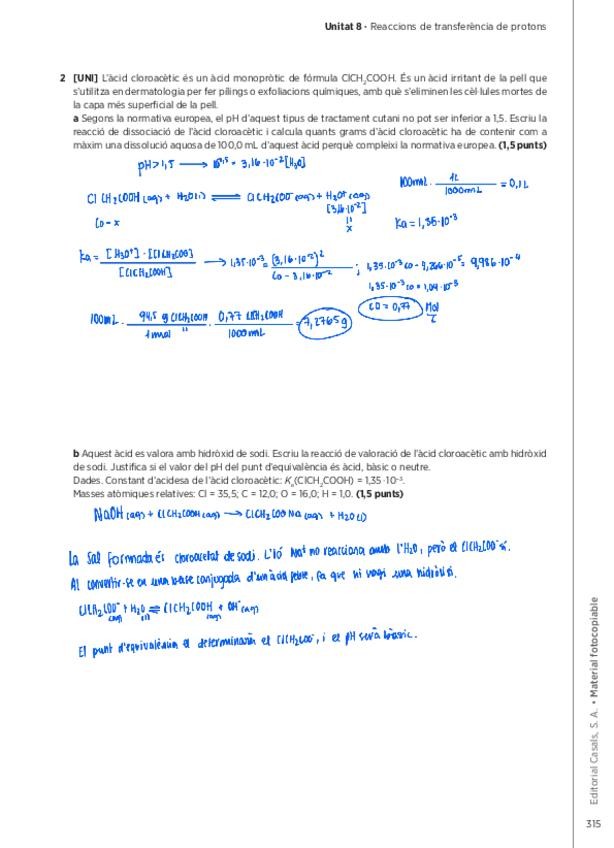 Unitat 8 · Reaccions de transferència de protons
2 [UNI] L'àcid cloroacètic és un àcid monopròtic de fórmula ClCH₂COOH. És un àcid irritant de la pell que
s'utilitza en dermatologia per fer pílings o exfoliacions químiques, amb què s'eliminen les cèl·lules mortes de
la capa més superficial de la pell.
a Segons la normativa europea, el pH d'aquest tipus de tractament cutani no pot ser inferior a 1,5. Escriu la
reacció de dissociació de l'àcid cloroacètic i calcula quants grams d'àcid cloroacètic ha de contenir com a
màxim una dissolució aquosa de 100,0 mL d'aquest àcid perquè compleixi la normativa europea. (1,5 punts)
pH>1,5 → 10⁻¹·⁵ = 3,16·10⁻² [H₃O]
100mL · 1L / 1000mL = 0,1L
ClCH₂COOH (aq) + H₂O(l) ⇌ ClCH₂COO⁻(aq) + H₃O⁺(aq)
[3,16·10⁻²]
Co - x
"
x
Ka = 1,35·10⁻³
Ka = [H₃O⁺]·[ClCH₂COO] / [ClCH₂COOH] → 1,35·10⁻³ = (3,16·10⁻²)² / Co - 3,16·10⁻² ; 1,35·10⁻³ co - 4,266·10⁻⁵ = 9,986·10⁻⁴
1,35·10⁻³ co = 1,04·10⁻³
CO = 0,77 Mol / L
100mL · 94,5 g ClCH₂COOH / 1 mol " · 0,77 ClCH₂COOH / 1000mL = 7,2765g
b Aquest àcid es valora amb hidròxid de sodi. Escriu la reacció de valoració de l'àcid cloroacètic amb hidròxid
de sodi. Justifica si el valor del pH del punt d'equivalència és àcid, bàsic o neutre.
Dades. Constant d'acidesa de l'àcid cloroacètic: Kₐ(ClCH₂COOH) = 1,35 ·10⁻³.
Masses atòmiques relatives: Cl = 35,5; C = 12,0; O = 16,0; H = 1,0. (1,5 punts)
NaOH (aq) + ClCH₂COOH (aq) → ClCH₂COONa (aq) + H₂O (l)
La sal formada és cloroacetat de sodi. L'ió Na⁺ no reacciona amb l'H₂O, però el ClCH₂COO⁻ sí.
Al convertir-se en una base conjugada d'un àcid feble, fa que hi vagi una hidròlisi.
ClCH₂COO⁻ (aq) + H₂O (l) ⇌ ClCH₂COOH (aq) + OH⁻ (aq)
El punt d'equivalència el determinarà el ClCH₂COO⁻, i el pH serà bàsic.
Editorial Casals, S. A. • Material fotocopiable
315